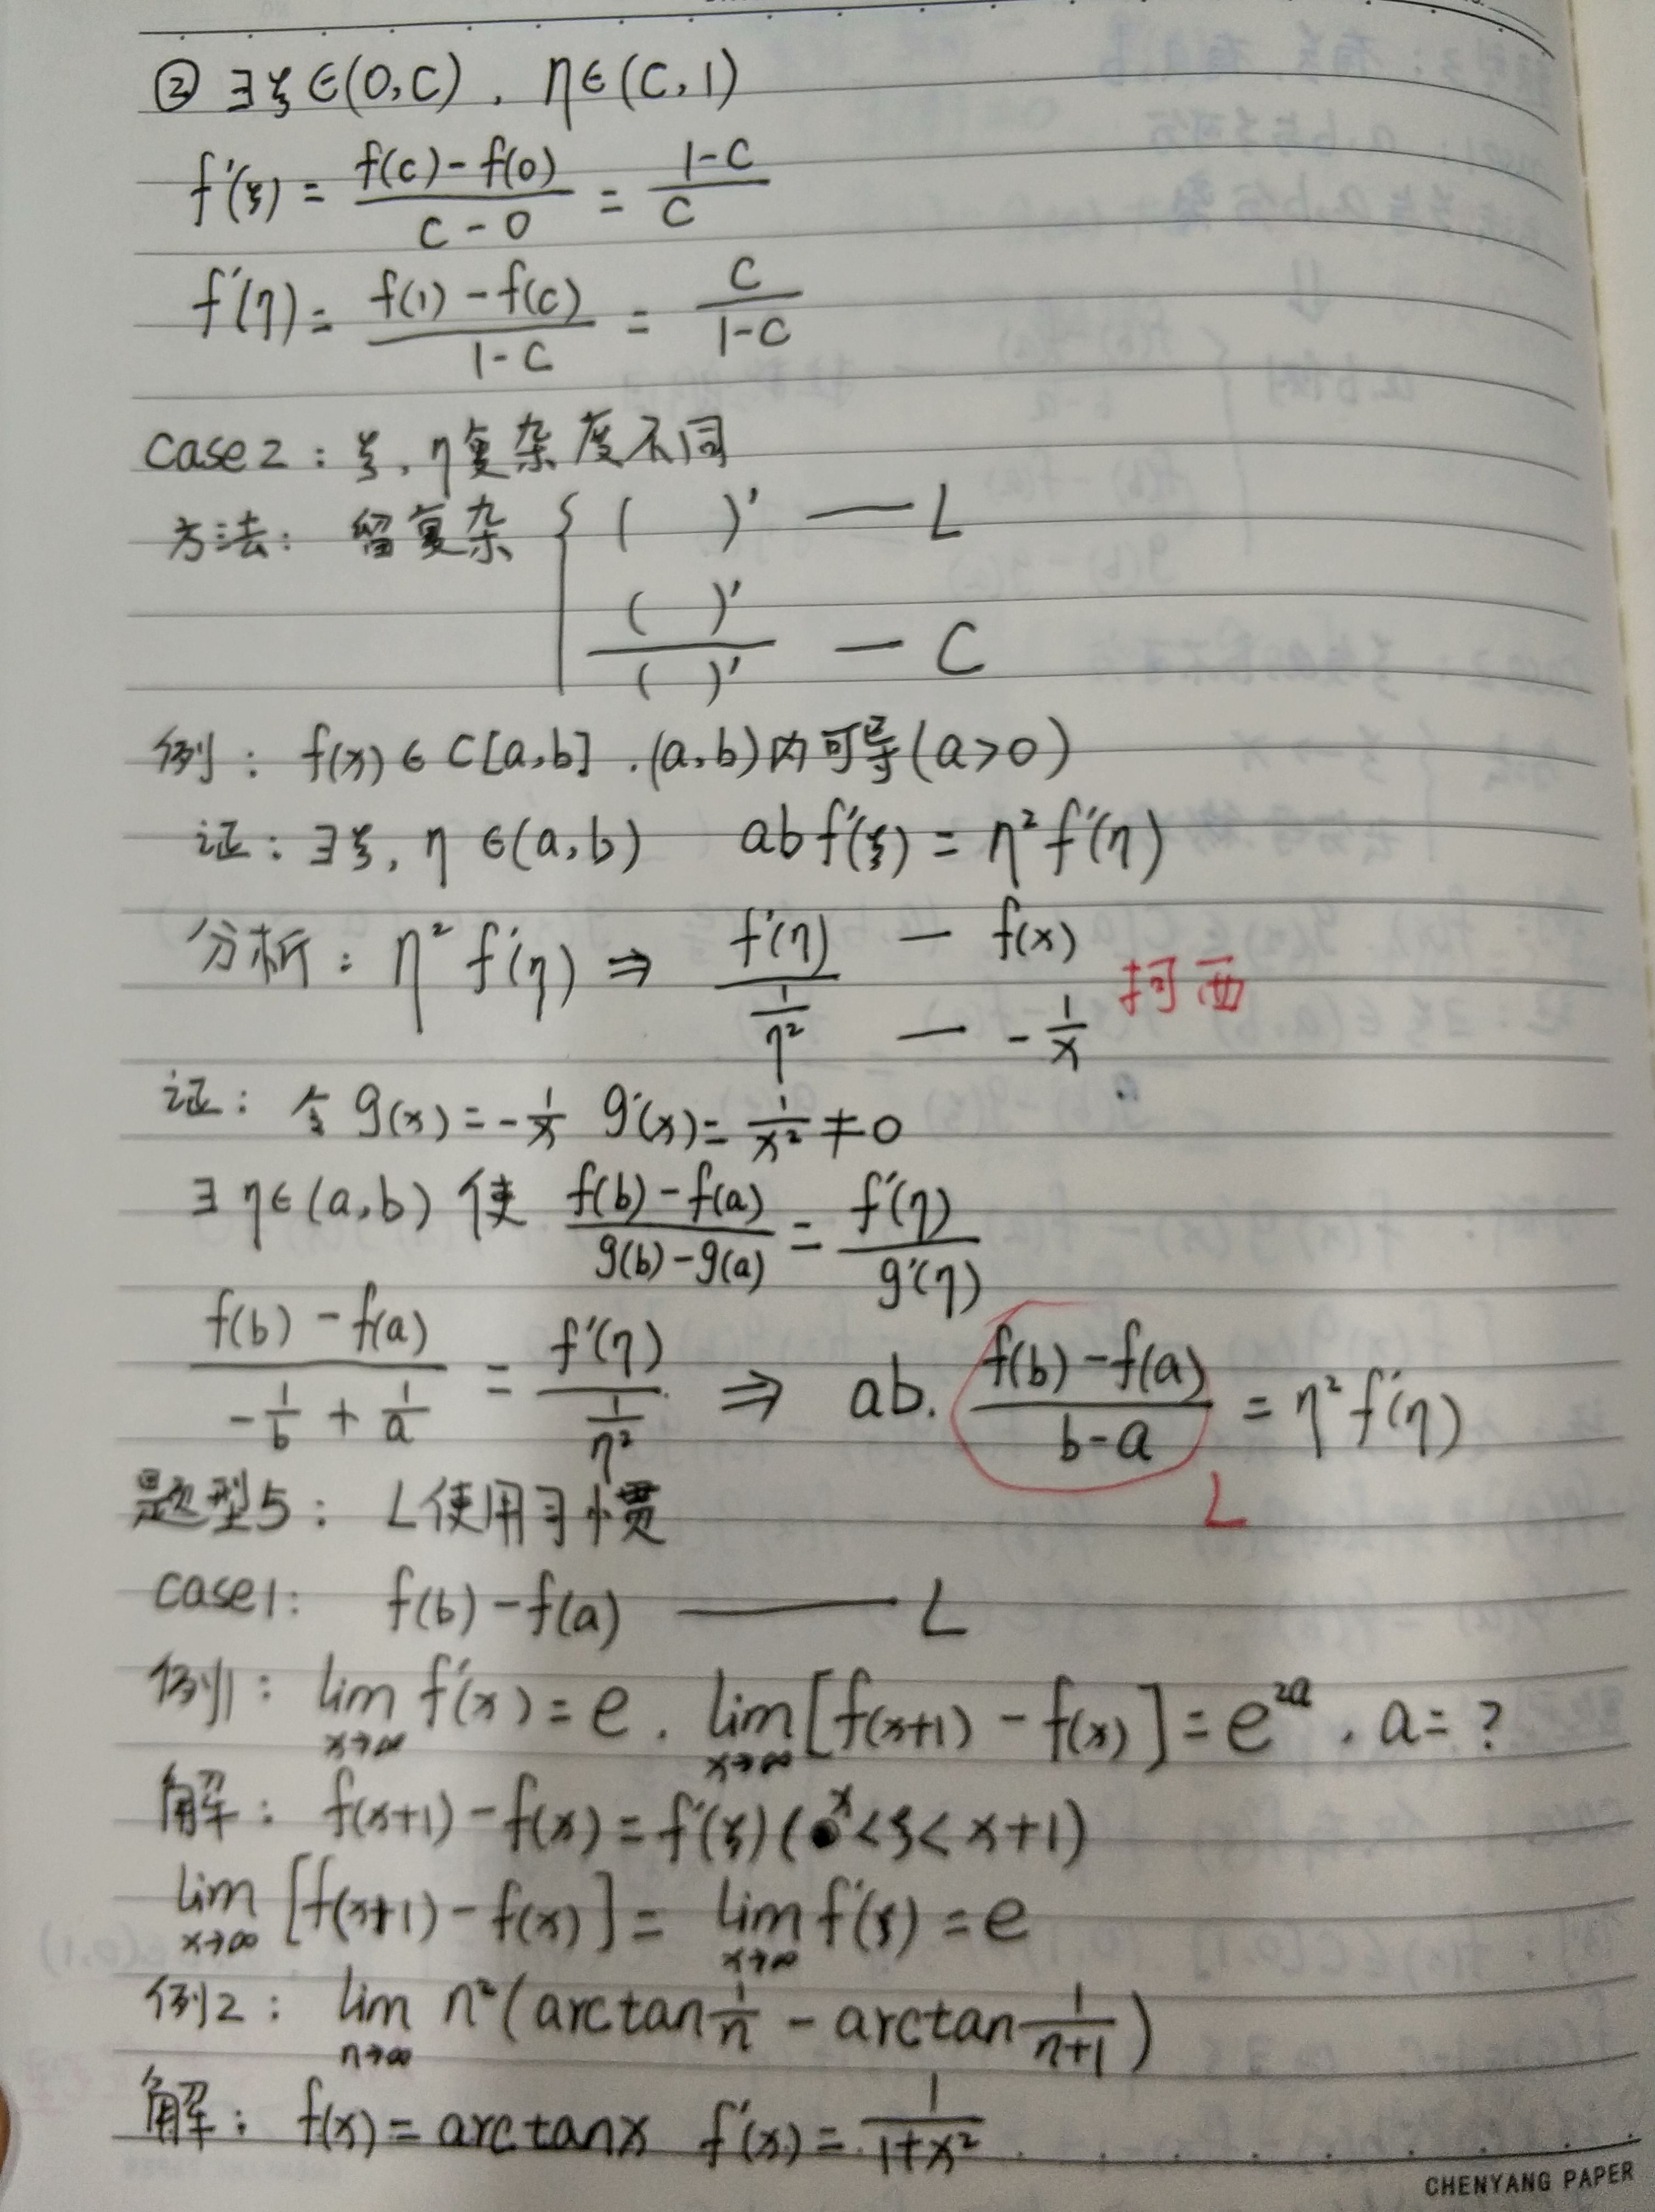 ② ∃ξ∈(0,C), η∈(C,1)
f'(ξ) = (f(c)-f(0))/(c-0) = (1-C)/C
f'(η) = (f(1)-f(c))/(1-C) = C/(1-C)
case2：ξ,η复杂度不同
方法：留复杂 { ( )' — L
( )'/( )' — C
例：f(x)∈C[a,b],(a,b)内可导(a>0)
证：∃ξ,η∈(a,b) abf'(ξ) = η²f'(η)
分析：η²f'(η) ⇒ f'(η)/(1/η²) — f(x) — -1/x 柯西
证：令g(x)=-1/x g'(x)=1/x²≠0
∃η∈(a,b) 使 (f(b)-f(a))/(g(b)-g(a)) = f'(η)/g'(η)
(f(b)-f(a))/(-1/b+1/a) = f'(η)/(1/η²) ⇒ ab·(f(b)-f(a))/(b-a) = η²f'(η)
L
题型5：L使用习惯
case1: f(b)-f(a) —— L
例1：lim x→∞ f'(x)=e, lim x→∞ [f(x+1)-f(x)]=e^{2a}, a=?
解：f(x+1)-f(x)=f'(ξ)(x<ξ<x+1)
lim x→∞ [f(x+1)-f(x)] = lim x→∞ f'(ξ)=e
例2：lim n→∞ n²(arctan 1/n - arctan 1/(n+1))
解：f(x)=arctanx f'(x)=1/(1+x²)
CHENYANG PAPER